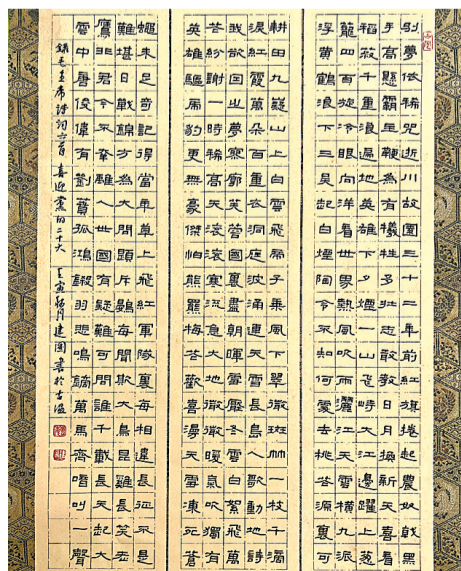 別夢依稀咒逝川故園三十二年前紅旗捲起農奴戟黑
手高懸霸主鞭為有犧牲多壯志敢教日月換新天喜看
稻菽千重浪遍地英雄下夕煙一山飛峙大江邊躍上葱
籠四百旋冷眼向洋看世界熱風吹雨灑江天雲橫九派
浮黃鶴浪下三吳起白煙陶令不知何處去桃花源裏可
耕田九嶷山上白雲飛帝子乘風下翠微斑竹一枝千滴
淚紅霞萬朵百重衣洞庭波涌連天雪長島人歌動地詩
我欲因之夢寥廓芙蓉國裏盡朝暉雪壓冬雲白絮飛萬
花紛謝一時稀高天滾滾寒流急大地微微暖氣吹獨有
英雄驅虎豹更無豪傑怕熊羆梅花歡喜漫天雪凍死蒼
蠅未足奇記得當年草上飛紅軍隊裏每相違長征不是
難堪日戰錦方為大問題斥鷃每聞欺大鳥昆雞長笑老
鷹非君今不幸離人世國有疑難可問誰千載長天起大
雲中唐俊偉有劉蕡孤鴻鎩羽悲鳴鏑萬馬齊喑叫一聲
錄毛主席詩詞六首 喜迎黨的二十大 壬寅 月建國書於古溫